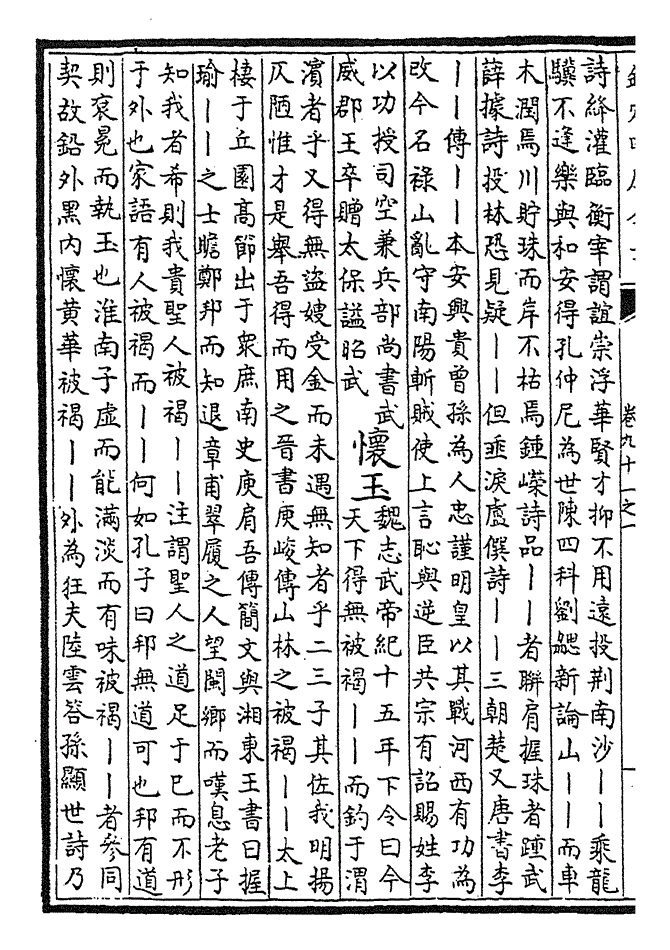 詩絳灌臨衡宰謂誼崇浮華賢才抑不用遠投荆南沙丨丨乘龍
驥不逢樂與和安得孔仲尼為世陳四科劉勰新論山丨丨而車
木潤焉川貯珠而岸不枯焉鍾嶸詩品丨丨者聯肩握珠者踵武
薛據詩投袜恐見疑丨丨但垂淚盧僎詩丨丨三朝楚又唐書李
丨丨傳丨丨本安興貴曾孫為人忠謹明皇以其戰河西有功為
改今名祿山亂守南陽斬賊使上言恥與逆臣共宗有詔賜姓李
以功授司空兼兵部尚書武
威郡王卒贈太保謚昭武
懷玉
魏志武帝紀十五年下令曰今
天下得無被褐丨丨而釣于渭
濱者乎又得無盜嫂受金而未遇無知者乎二三子其佐我明揚
仄陋惟才是舉吾得而用之晉書庾峻傳山林之被褐丨丨太上
棲于丘園高節出于衆庶南史庾肩吾傳簡文與湘東王書曰握
瑜丨丨之士瞻鄭邦而知退章甫翠履之人望閩鄉而嘆息老子
知我者希則我貴聖人被褐丨丨注謂聖人之道足于已而不形
于外也家語有人被褐而丨丨何如孔子曰邦無道可也邦有道
則衮冕而執玉也淮南子虛而能滿淡而有味被褐丨丨者參同
契故鉛外黑內懷黄華被褐丨丨外為狂夫陸雲答孫顯世詩乃